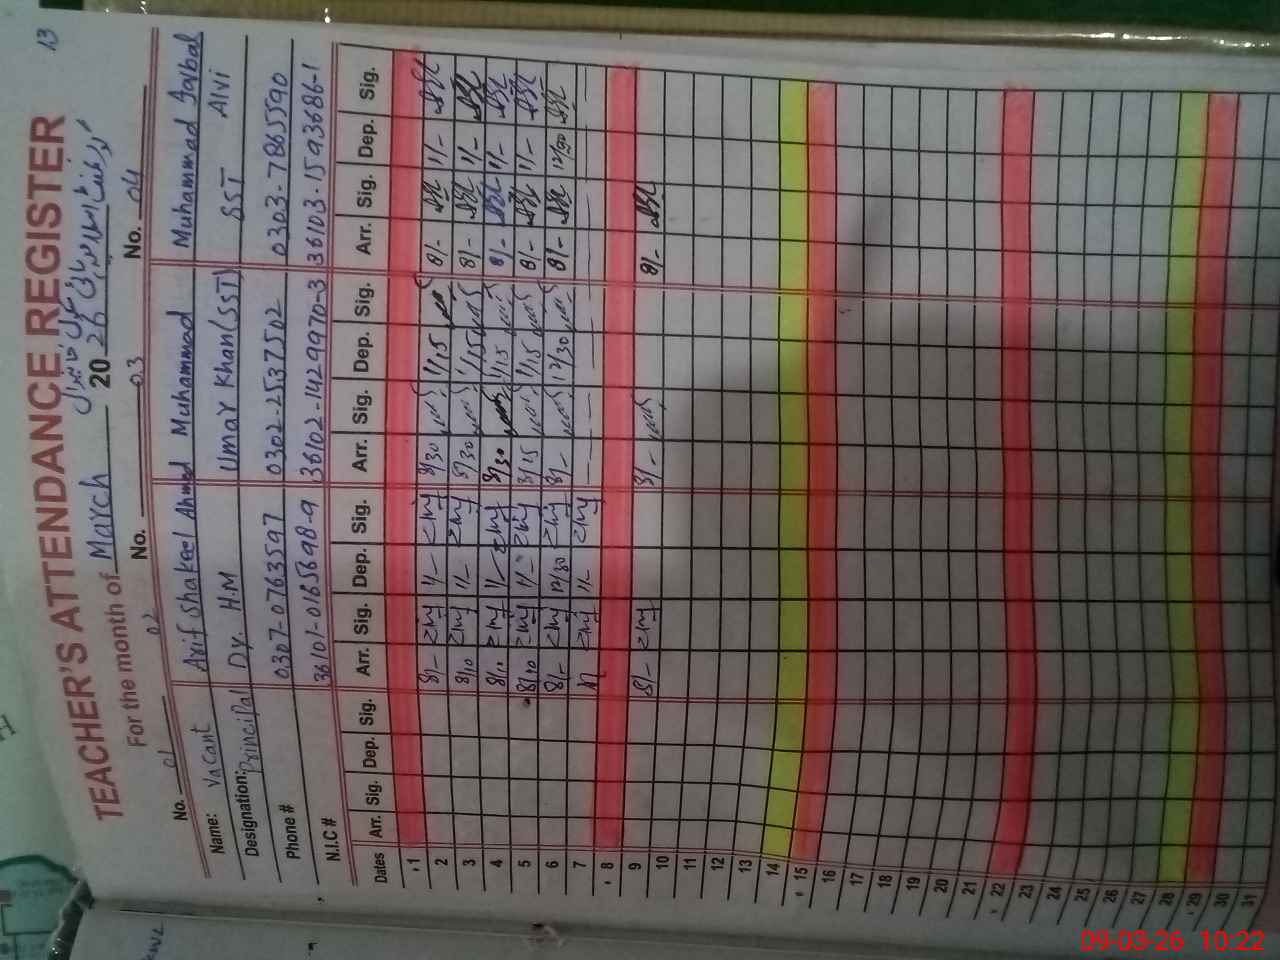 13
TEACHER'S ATTENDANCE REGISTER
For the month of March 2026
No. 01 02 No. 03 No. 04
Name: Vacant Arif Shakeel Ahmed Muhammad Muhammad Iqbal
Designation: Principal Dy. H.M Umar Khan (SST) SST Alvi
Phone # 0307-0763597 0302-2537502 0303-7865590
N.I.C # 36101-0165698-9 36102-1429970-3 36103-1593686-1
Dates Arr. Sig. Dep. Sig. Arr. Sig. Dep. Sig. Arr. Sig. Dep. Sig. Arr. Sig. Dep. Sig.
1
2 8/- 1/- 8/30 1/15 8/- 1/-
3 8/10 1/- 8/30 1/15 8/- 1/-
4 8/10 1/- 8/30 1/15 8/- 1/-
5 8/10 1/- 8/15 1/15 8/- 1/-
6 8/- 12/30 8/- 12/30 8/- 12/30
7 1/-
8
9 8/- 8/- 8/-
10
11
12
13
14
15
16
17
18
19
20
21
22
23
24
25
26
27
28
29
30
31
09-03-26 10:22